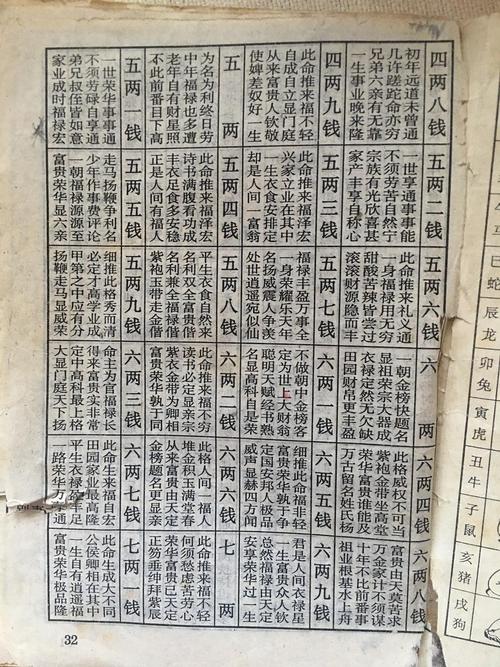 四两八钱
初年远道未曾通
几许蹉跎命亦穷
兄弟六亲有无靠
一生事业晚来隆
四两九钱
此命推来福不轻
自成自立显门庭
从来富贵人钦敬
使婢差奴好一生
五两
为名为利终日劳
中年福禄也多遭
老年自有财星照
不此前番目下高
五两一钱
一世荣华事事通
不须劳碌自享通
弟兄叔侄皆如意
家业成时福禄宏
五两二钱
一世享通事事能
不须劳苦自然宁
宗族有光欣喜甚
家产丰享自称心
五两三钱
此命推来福泽宏
兴家立业在其中
一生衣食安排定
却是人间一富翁
五两四钱
此命推来福泽宏
诗书满腹看功成
丰衣足食多安稳
正是人间有福人
五两五钱
走马扬鞭争利名
少年作事费评论
一朝福禄源源至
富贵荣华显六亲
五两六钱
此命推来礼义通
一身福禄用无穷
甜酸苦辣皆尝过
滚滚财源隐而丰
五两七钱
福禄丰盈万事全
一身荣耀乐天年
名扬威震人争羡
处世逍遥宛似仙
五两八钱
平生衣食自然来
名利双全富贵偕
名利兼全福禄羡
紫袍玉带走金偕
五两九钱
细推此格秀而清
必定才高学业成
甲第之中应有分
扬鞭走马显威荣
六两
一朝金榜快题名
显祖荣宗大器成
衣禄定然无欠缺
田园财帛更丰盈
六两一钱
不做朝中金榜客
定为世上大财翁
聪明天赋经书熟
名显高科自是荣
六两二钱
此命推来福不穷
读书必定显亲宗
紫衣金带为卿相
富贵荣华孰与同
六两三钱
命主为官福禄长
得来富贵实非常
定中高科最上格
大显门庭天下扬
六两四钱
此格威权不可当
紫袍金带坐高堂
荣华富贵谁能及
万古留名姓氏杨
六两五钱
细推此命福非轻
富贵荣华孰于争
定国安邦人极品
威声显赫四方闻
六两六钱
此格人间一福人
堆金积玉满堂春
从来富贵由天定
金榜题名更显亲
六两七钱
此命生来福自宏
田园家业最高隆
平生衣禄盈丰足
一路荣华万事通
六两八钱
富贵由天莫苦求
万金家计不须谋
十年不比前番事
祖业根基水上舟
六两九钱
君是人间衣禄星
一生富贵众人钦
总然福禄由天定
安享荣华过一生
七两
此命推来福不轻
何须愁虑苦劳心
荣华富贵已天定
正笏垂绅拜紫宸
七两一钱
此命生成大不同
公侯卿相在其中
一生自有逍遥福
富贵荣华极品隆
32
马
巳蛇
辰龙
卯兔
寅虎
丑牛
子鼠
亥猪
戌狗